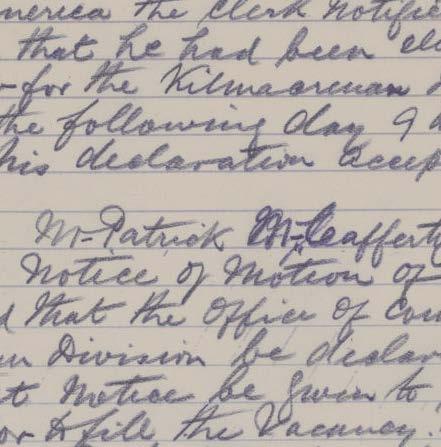 merica the Clerk notifie
that he had been ele
for the Kilmacrenan
the following day 9
his declaration accep
Mr Patrick McCafferty
Notice of Motion of
d that the Office of Cou
an Division be declar
at Notice be given to
or to fill the Vacancy.